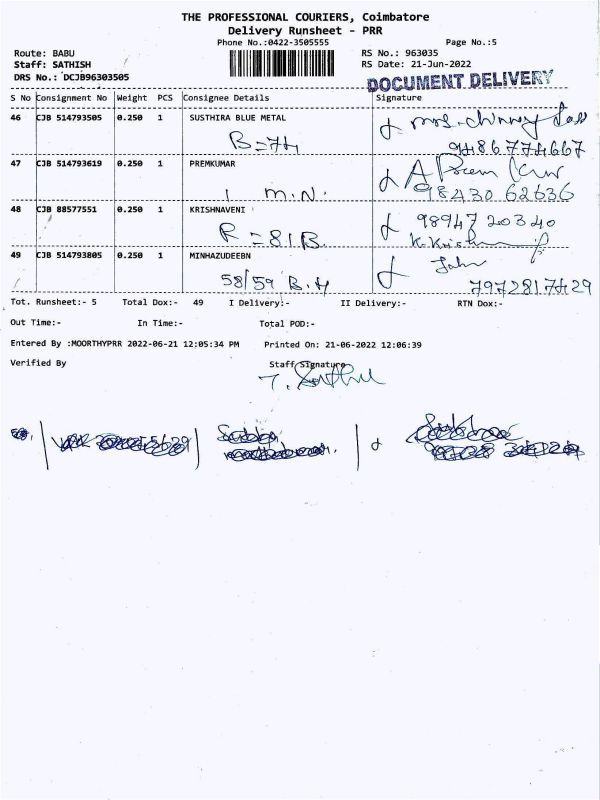 THE PROFESSIONAL COURIERS, Coimbatore
Delivery Runsheet - PRR
Phone No.:0422-3505555 Page No.:5
Route: BABU RS No.: 963035
Staff: SATHISH RS Date: 21-Jun-2022
DRS No.: DCJB96303505
DOCUMENT DELIVERY
S No Consignment No Weight PCS Consignee Details Signature
46 CJB 514793505 0.250 1 SUSTHIRA BLUE METAL
B=74 9486774667
47 CJB 514793619 0.250 1 PREMKUMAR
1 M.N. 98430 62636
48 CJB 88577551 0.250 1 KRISHNAVENI 98947 20340
R=81B.
49 CJB 514793805 0.250 1 MINHAZUDEEBN John
58/59 B.H 7972817429
Tot. Runsheet:- 5 Total Dox:- 49 I Delivery:- II Delivery:- RTN Dox:-
Out Time:- In Time:- Total POD:-
Entered By :MOORTHYPRR 2022-06-21 12:05:34 PM Printed On: 21-06-2022 12:06:39
Verified By Staff Signature